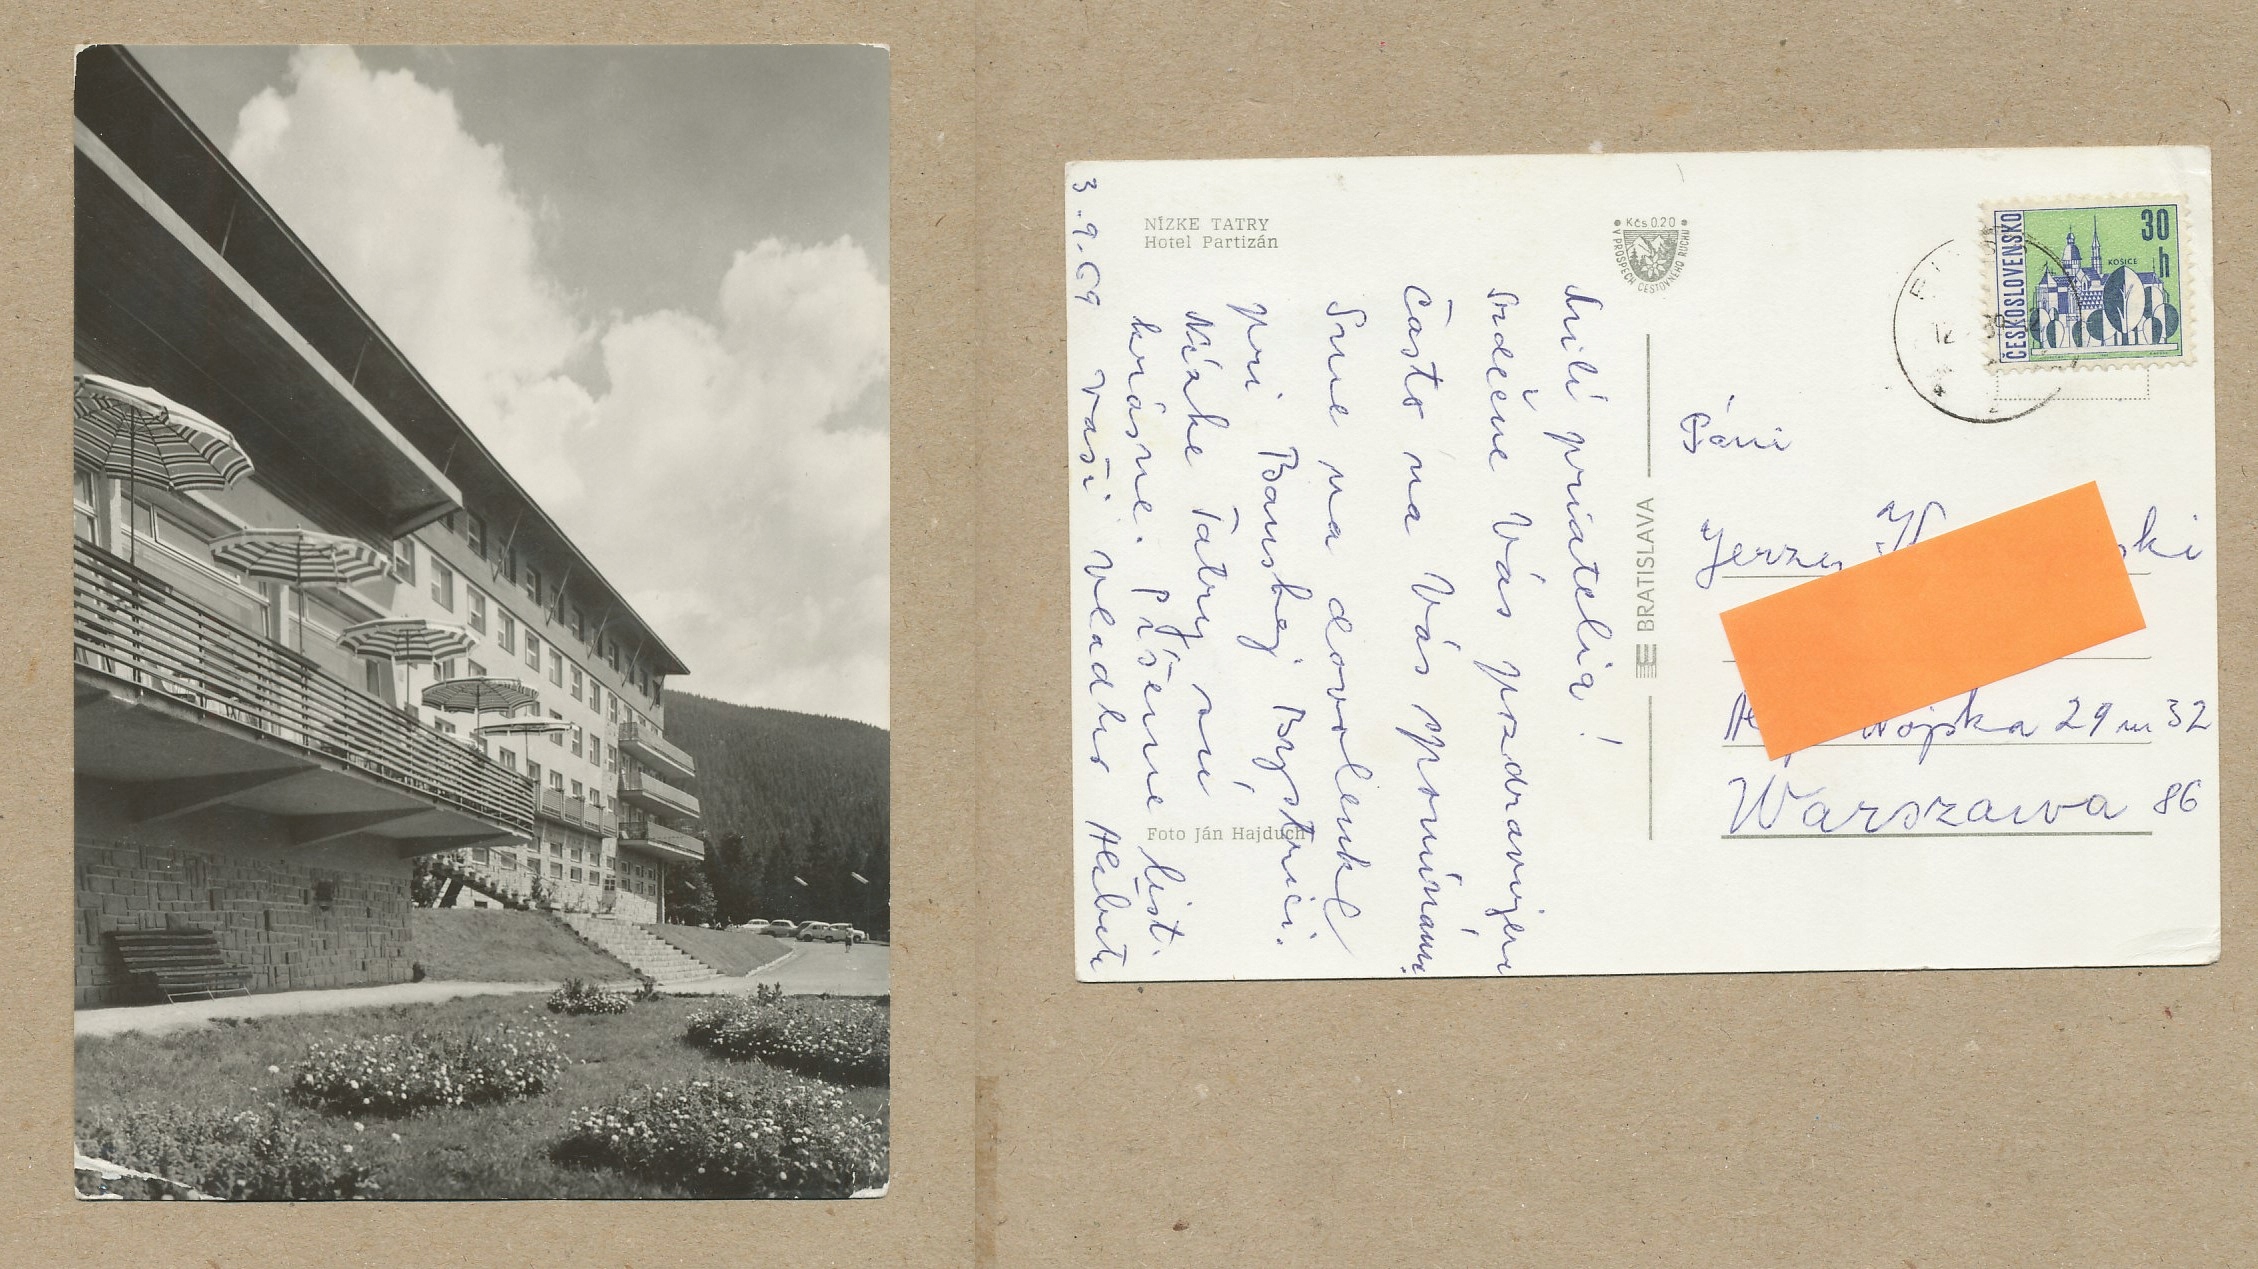 NÍZKE TATRY
Hotel Partizán
Kčs 0.20
V PROSPECH CESTOVNÉHO RUCHU
ČESKOSLOVENSKO
30
h
KOŠICE
12
Milí priatelia!
Srdečne Vás pozdravujem
Často na Vás spomíname.
Sme na dovolenke
pri Banskej Bystrici.
Nízke Tatry sú
krásne. Píšeme list.
3.9.69 Vaši
BRATISLAVA
Foto Ján Hajduch
Pani
Jerzy ski
Wojska 29 m 32
Warszawa 86